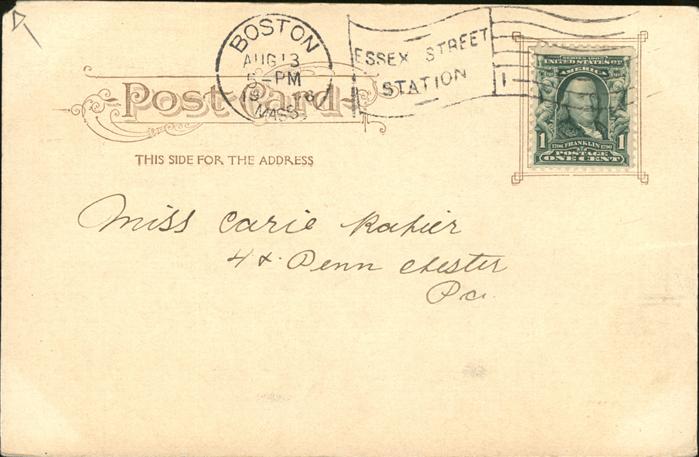 BOSTON
AUG 13
5-PM
MASS.
ESSEX STREET
STATION
1
Post Card
THIS SIDE FOR THE ADDRESS
UNITED STATES OF
AMERICA
1 1
FRANKLIN
POSTAGE
ONE CENT
Miss Carie Rahier
4 & Penn Chester
Pa.